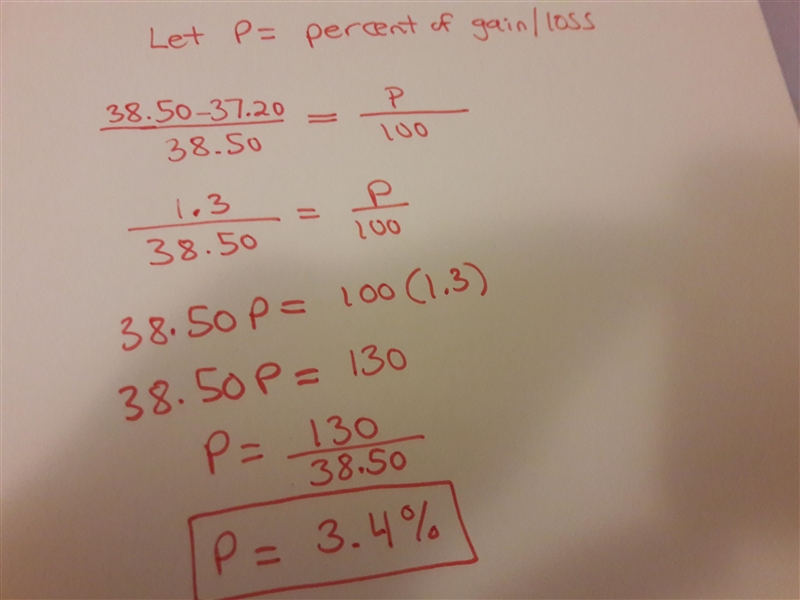 Let P = percent of gain/loss
38.50-37.20/38.50 = P/100
1.3/38.50 = P/100
38.50P = 100(1.3)
38.50P = 130
P = 130/38.50
P = 3.4%